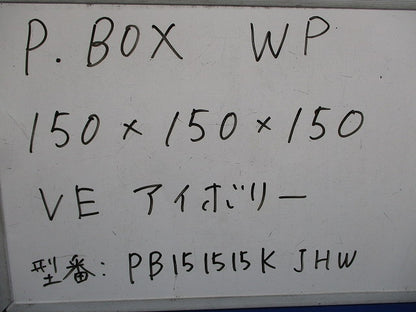 P. BOX WP
150×150×150
VE アイボリー
型番: PB151515K JHW